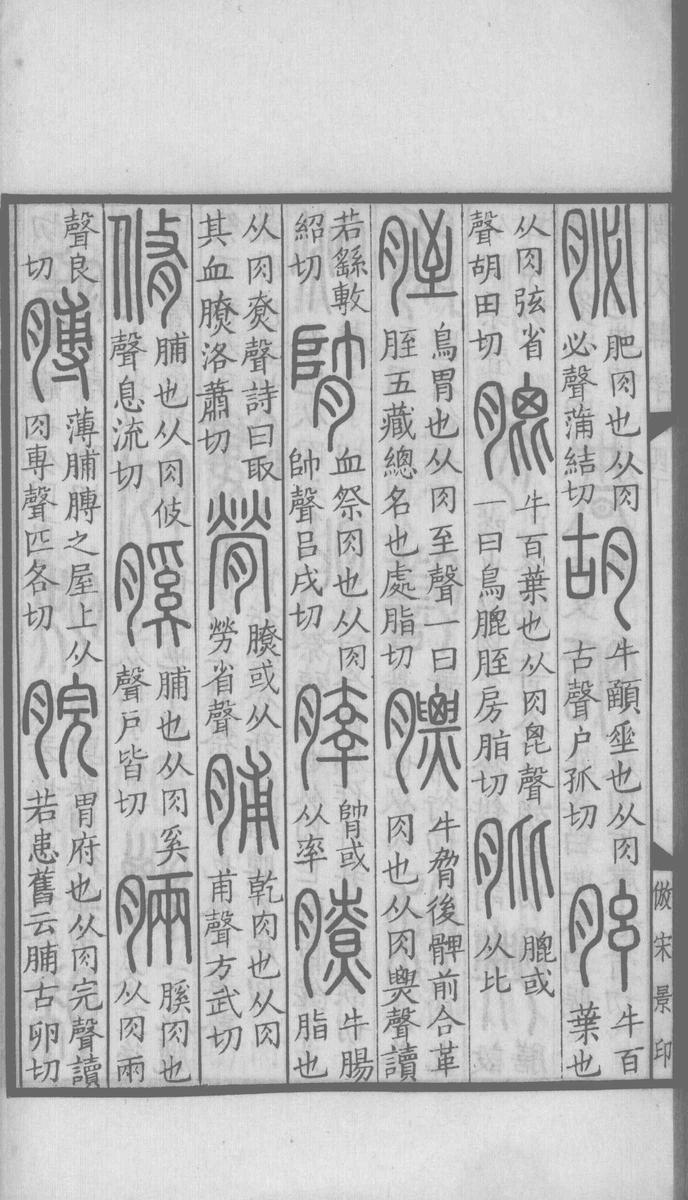 倣宋景印
䏟肥肉也从肉必聲蒲結切胡牛顄垂也从肉古聲戶孤切胘牛百葉也
从肉弦省聲胡田切膍牛百葉也从肉毘聲一曰鳥膍胵房脂切肶膍或从比
胵鳥胃也从肉至聲一曰胵五藏總名也處脂切膘牛脅後髀前合革肉也从肉㶾聲讀
若繇敷紹切𦜹血祭肉也从肉帥聲呂戌切膟𦜹或从率膫牛腸脂也
从肉尞聲詩曰取其血膫洛蕭切膋膫或从勞省聲脯乾肉也从肉甫聲方武切
脩脯也从肉攸聲息流切膎脯也从肉奚聲戶皆切脼膎肉也从肉兩
聲良切膊薄脯膊之屋上从肉尃聲匹各切脘胃府也从肉完聲讀若患舊云脯古卵切